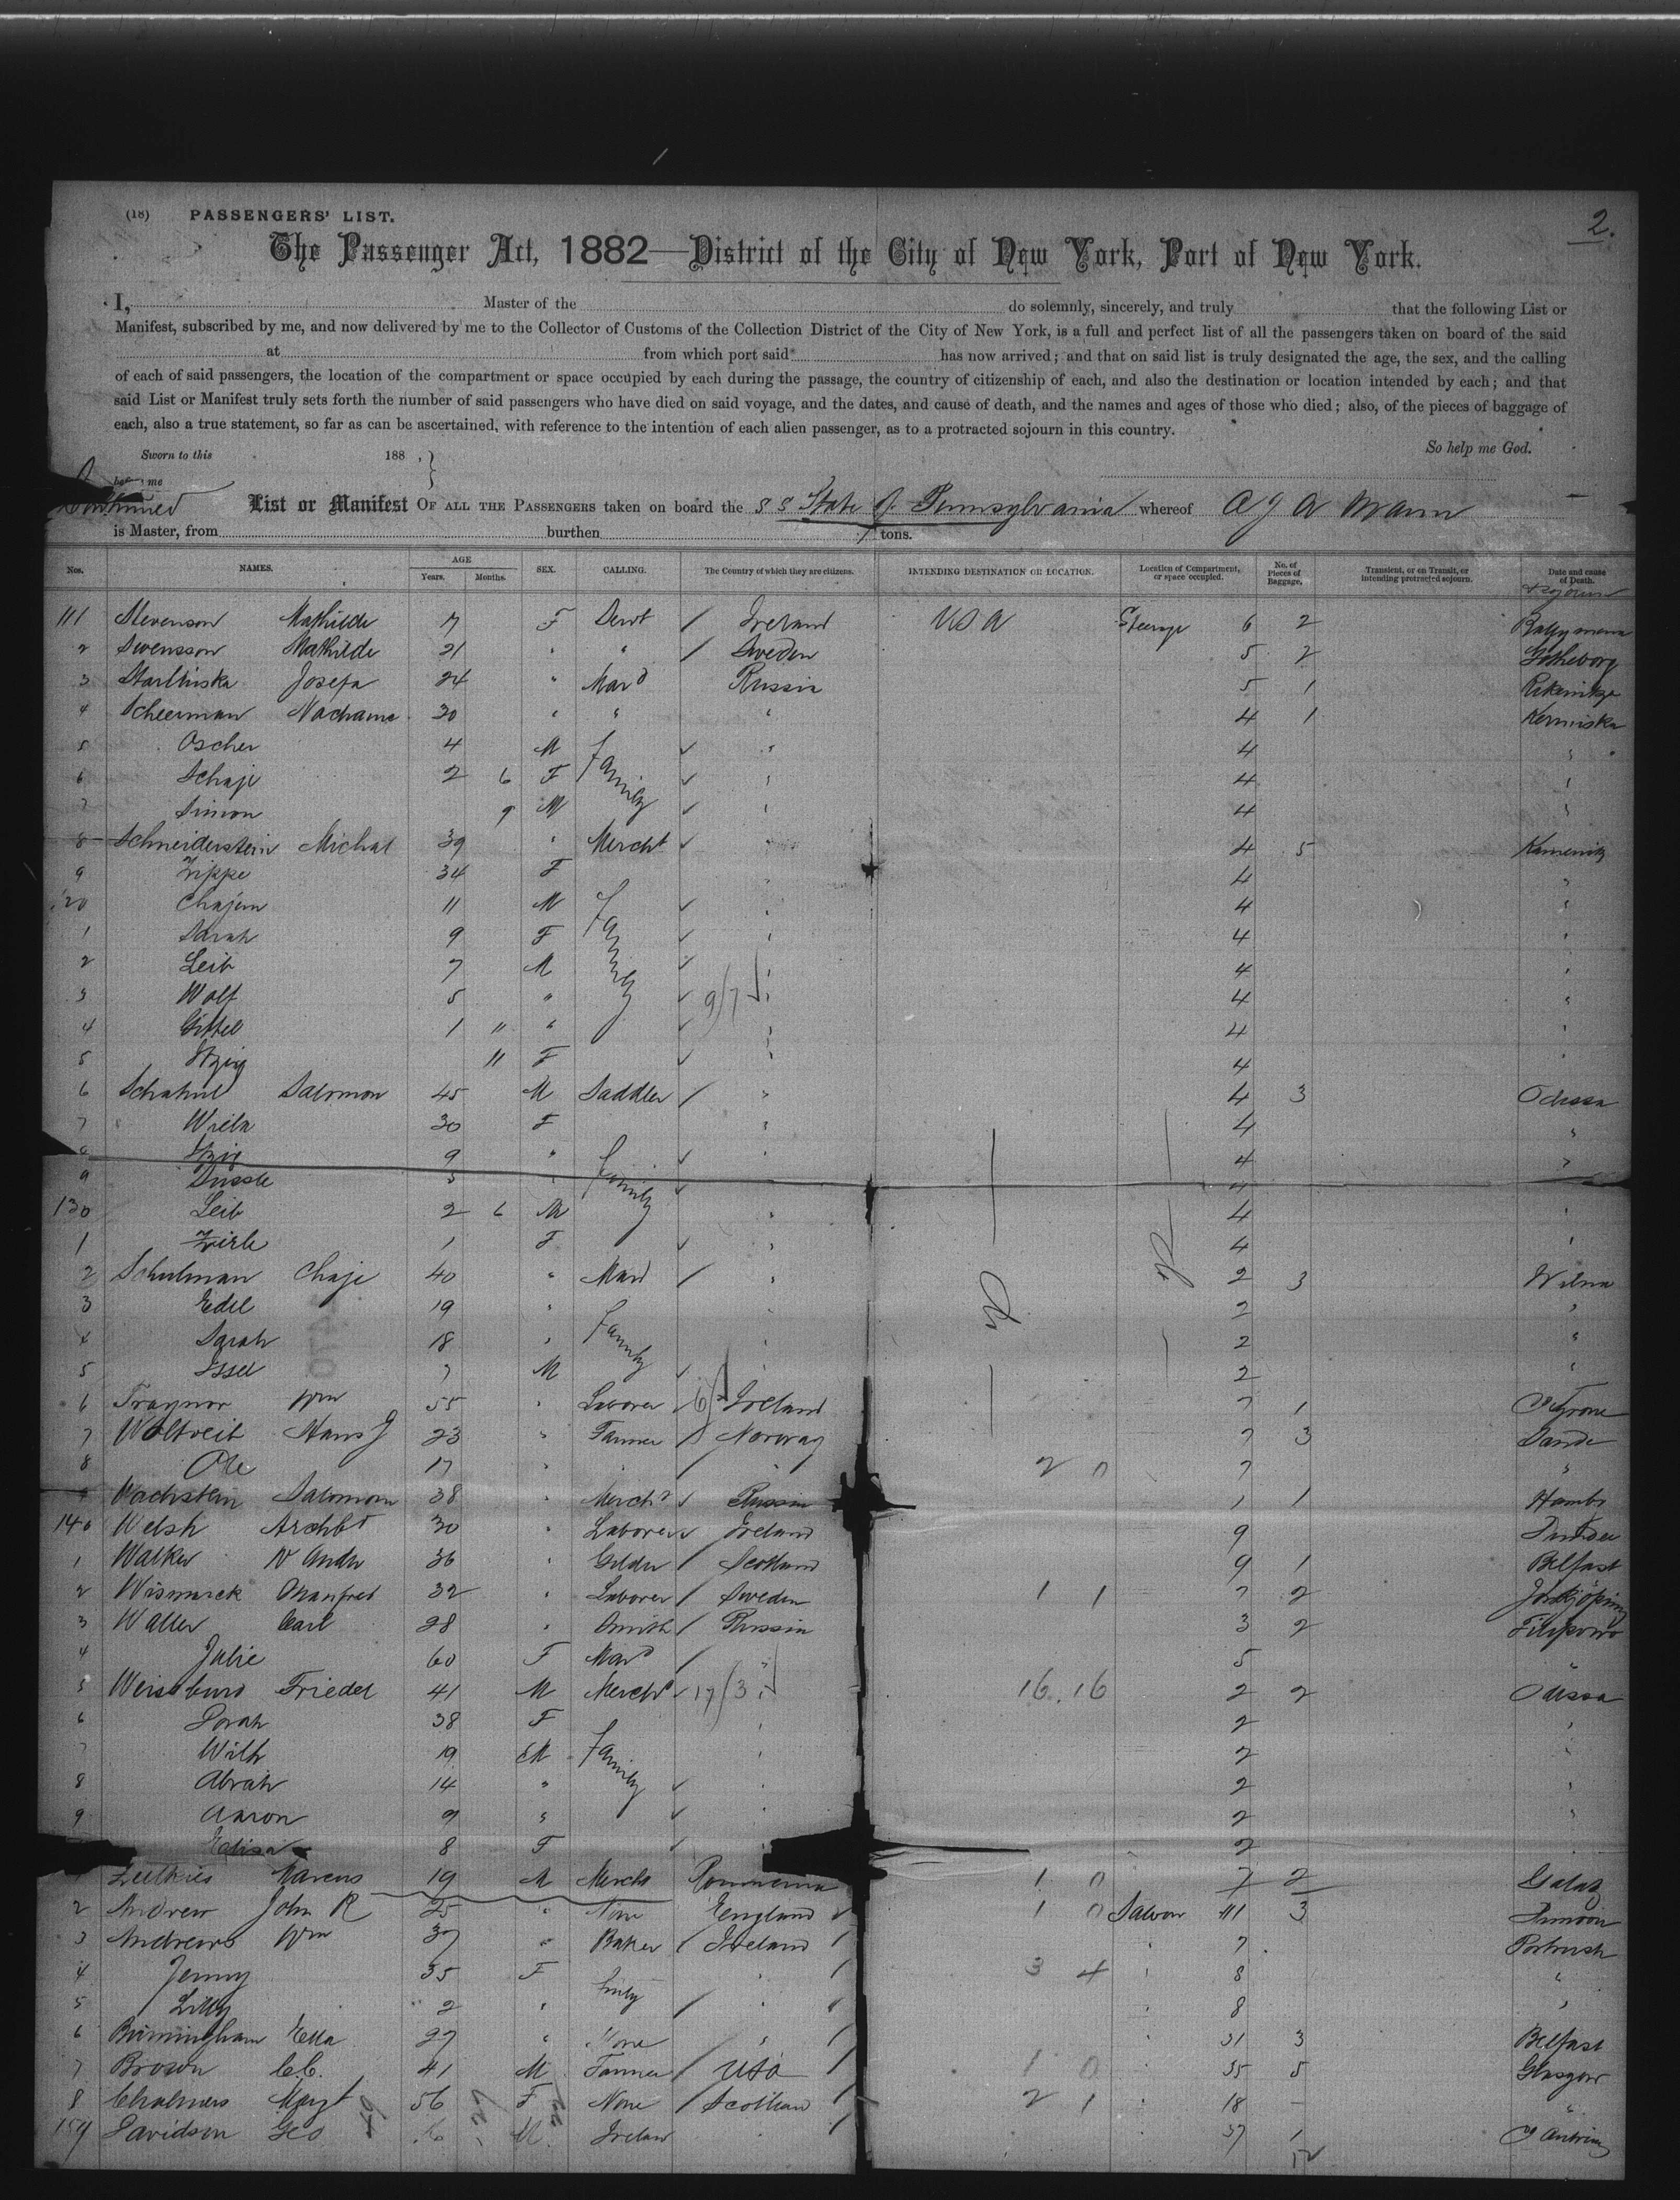 (18) PASSENGERS' LIST.
2.
The Passenger Act, 1882—District of the City of New York, Port of New York.
I, Master of the do solemnly, sincerely, and truly that the following List or
Manifest, subscribed by me, and now delivered by me to the Collector of Customs of the Collection District of the City of New York, is a full and perfect list of all the passengers taken on board of the said
at from which port said has now arrived; and that on said list is truly designated the age, the sex, and the calling
of each of said passengers, the location of the compartment or space occupied by each during the passage, the country of citizenship of each, and also the destination or location intended by each; and that
said List or Manifest truly sets forth the number of said passengers who have died on said voyage, and the dates, and cause of death, and the names and ages of those who died; also, of the pieces of baggage of
each, also a true statement, so far as can be ascertained, with reference to the intention of each alien passenger, as to a protracted sojourn in this country.
So help me God.
Sworn to this 188 ,
me
Continued List or Manifest OF ALL THE PASSENGERS taken on board the S S State of Pennsylvania whereof A J A Mann
is Master, from burthen tons.
Nos. NAMES. AGE Years. Months. SEX. CALLING. The Country of which they are citizens. INTENDING DESTINATION OR LOCATION. Location of Compartment, or space occupied. No. of Pieces of Baggage. Transient, or on Transit, or intending protracted sojourn. Date and cause of Death.
111 Stevenson Mathilde 7 F Servt / Ireland USA Steerage 6 2 Ballymena
2 Swensson Mathilde 21 " " / Sweden 5 2 Gotheborg
3 Josefa 24 " Mard Russia 5 1
4 Scheerman Nachame 30 " " " 4 1
5 Oscher 4 M Family " 4 "
6 Schaje 2 6 F " 4 "
7 Simon 9 M " 4 "
8 Schneiderstein Michal 39 " Mercht " 4 5 Kamenitz
9 Zippe 34 F " 4 "
120 Chajem 11 M Family " 4 "
1 Sarah 9 F " 4 "
2 Leib 7 M " 4 "
3 Wolf 5 " 9/7 " 4 "
4 Gittel 1 " " " 4 "
5 Itzig 11 F " 4 "
6 Salomon 45 M Saddler / " 4 3 Odessa
7 30 F " 4 "
9 " Family " 4 "
9 4
130 Leib 2 6 M " 4 "
1 Zirle 1 F " 4 "
2 Schulman Chaje 40 " Mard / " 2 3 Wilna
3 Edel 19 " " 2 "
4 Sarah 18 " Family " 2 "
5 Issel 7 M 2 "
6 Traynor Wm 55 " Laborer 6/ Ireland 7 1 Tyrone
7 Hans J 23 " Farmer / Norway 7 3 Sande
8 Ole 17 " " / " 2 0 7 "
Wachstein Salomon 38 " Mercht Russia 1 1 Hambg
140 Welsh Archbt 30 " Laborer Ireland 9 Dundee
1 Walker 36 " / Scotland 9 1 Belfast
2 Wismarck Manfred 32 " Laborer / Sweden 1 1 7 2 Jonkjöping
3 Waller Carl 28 " Smith / Russia 3 2 Filipowo
4 Julie 60 F Mard / " 5 "
5 Friedel 41 M Mercht 17/3 " 16 16 2 2 Odessa
6 Sorah 38 F " 2 "
7 19 M Family " 2 "
8 Abrah 14 " " 2 "
9 Aaron 9 " " 2 "
8 F " 2
Marcus 19 M Mercht Roumenia 1 0 7 2 Galatz
2 Andrew John R 25 " None England 1 0 Saloon 3
3 Andrews Wm 37 " Baker / Ireland / " 7 Portrush
4 Jenny 35 F Family " / 3 4 " 8 "
5 Lilly 2 " / " " 8 "
6 Birmingham Ella 27 " None " / " 31 3 Belfast
7 Brown C.C. 41 M Farmer / USA / 1 0 " 35 5 Glasgow
8 Chalmers Margt 56 F None / Scotland / 2 1 " 18 – "
159 Davidson Geo M Ireland " / " 37 1 Antrim